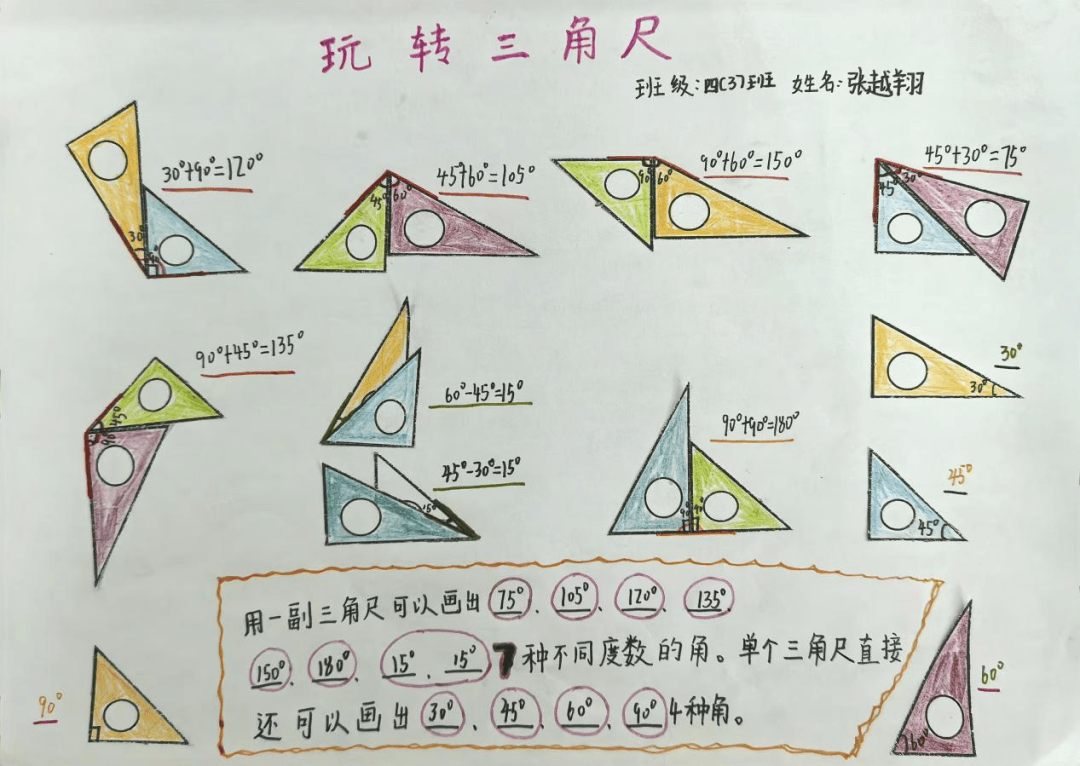 玩转三角尺
班级:四(3)班 姓名:张越翔
30°+90°=120°
30°
45°+60°=105°
45° 60°
90°+60°=150°
90° 60°
45°+30°=75°
45° 30°
90°+45°=135°
45°
90°
60°-45°=15°
45°-30°=15°
15°
90°+90°=180°
90° 90°
30°
30°
45°
45°
用一副三角尺可以画出75°、105°、120°、135°、
150°、180°、15°、15° 7种不同度数的角。单个三角尺直接
还可以画出30°、45°、60°、90°4种角。
90°
60°
60°